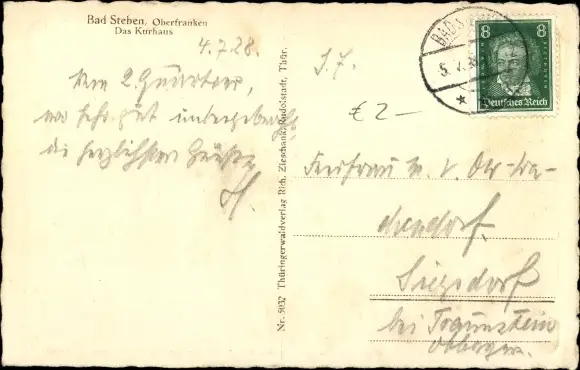 Bad Steben, Oberfranken
Das Kurhaus
4.7.28.
Vom 2. Quartier,
wo sehr gut untergebracht
die herzlichsten Grüße
Nr. 5032 Thüringerwaldverlag Rich. Zieschank, Rudolstadt, Thür.
€ 2-
BAD
8 8
Deutsches Reich
Freifrau
Siegsdorf
bei Traunstein